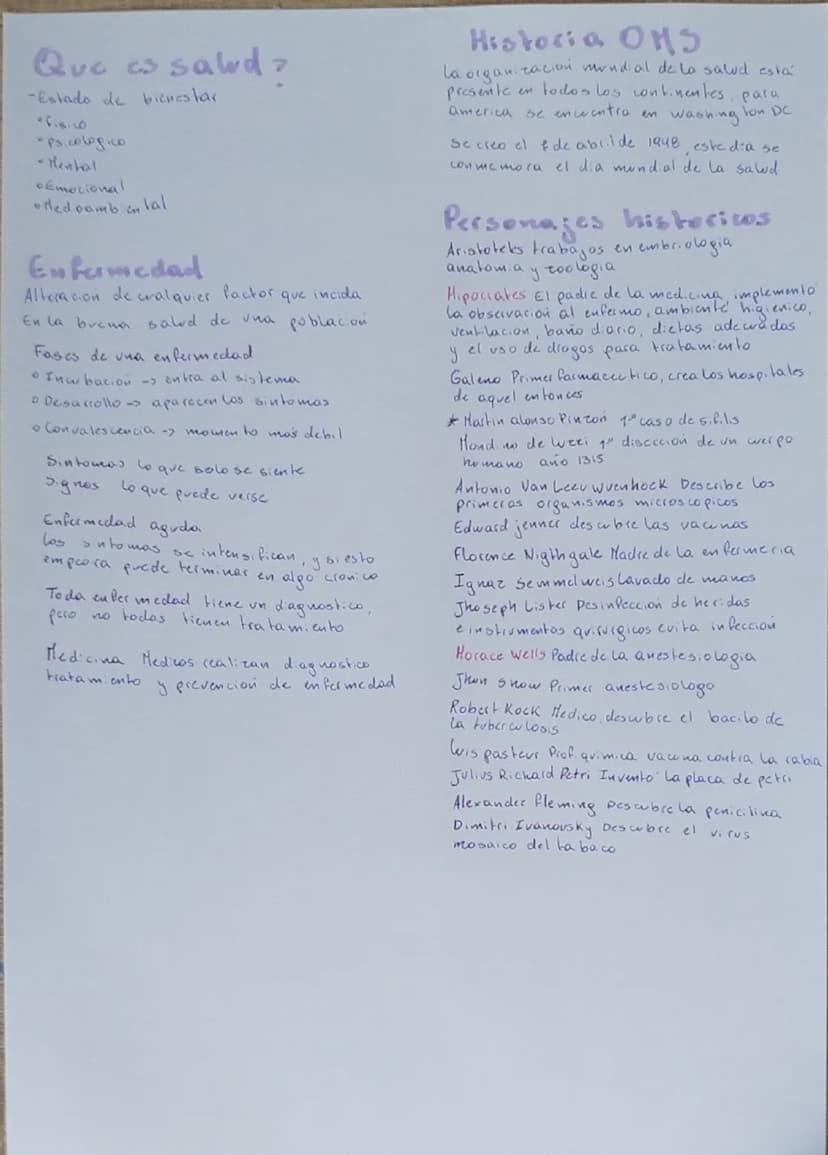 Que es salud?
-Estado de bienestar
•fisico
•psicologico
•Mental
•Emocional
•Medoambiental
Enfermedad
Alteracion de cualquier factor que incida
En la buena salud de una poblacion
Fases de una enfermedad
•Incubacion -> entra al sistema
•Desarrollo -> aparecen los sintomas
•Convalescencia -> momento mas debil
Sintomas lo que solo se siente
Signos lo que puede verse
Enfermedad aguda
los sintomas se intensifican, y si esto
empeora puede terminar en algo cronico
Toda enfermedad tiene un diagnostico,
pero no todas tienen tratamiento
Medicina Medicos realizan diagnostico
tratamiento y prevencion de enfermedad
Historia OMS
la organizacion mundial de la salud está
presente en todos los continentes, para
america se encuentra en washington DC
Se creo el 7 de abril de 1948, este dia se
conmemora el dia mundial de la salud
Personajes historicos
Aristoteles trabajos en embriologia
anatomia y zoologia
Hipocrates El padre de la medicina, implementó
la observacion al enfermo, ambiente higienico,
ventilacion, baño diario, dietas adecuadas
y el uso de drogas para tratamiento
Galeno Primer farmaceutico, crea los hospitales
de aquel entonces
* Martin alonso Pinzon 1er caso de sifilis
Mondino de Luzzi 1er diseccion de un cuerpo
humano año 1315
Antonio Van Leeuwuenhock Describe los
primeros organismos microscopicos
Edward jenner descubre las vacunas
Florence Nigthgale Madre de la enfermeria
Ignaz Semmelweis Lavado de manos
Jhoseph Lister Desinfeccion de heridas
e instrumentos quirurgicos evita infeccion
Horace Wells Padre de la anestesiologia
Jhon Snow Primer anestesiologo
Robert Kock Medico, descubre el bacilo de
la tuberculosis
luis pasteur Prof. quimica vacuna contra la rabia
Julius Richard Petri Inventó la placa de petri
Alexander fleming Descubre la penicilina
Dimitri Ivanovsky Descubre el virus
mosaico del tabaco